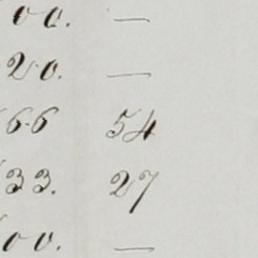 00. —
20. —
66 54
33. 27
00. —